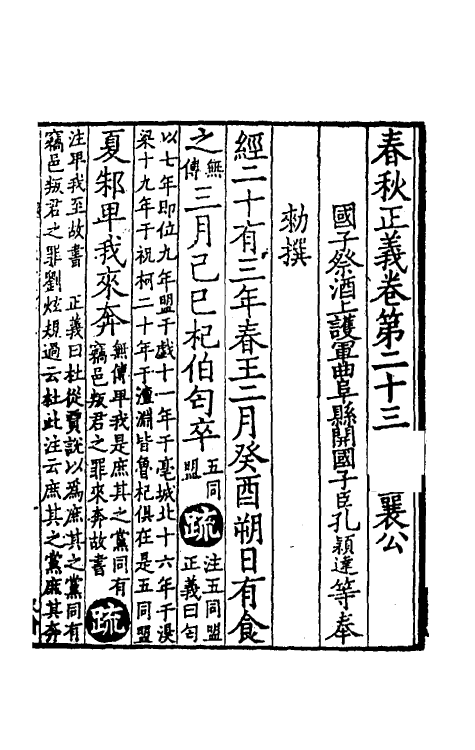 春秋正義卷第二十三 襄公
國子祭酒上護軍曲阜縣開國子臣孔穎達等奉
勑撰
經二十有三年春王二月癸酉朔日有食
之無傳三月己巳杞伯匄卒五同盟疏注五同盟正義曰匄
以七年即位九年盟于戲十一年于亳城北十六年于湨
梁十九年于祝柯二十年于澶淵皆魯杞俱在是五同盟
夏邾畀我來奔無傳畀我是庶其之黨同有竊邑叛君之罪來奔故書疏
注畀我至故書 正義曰杜從賈說以為庶其之黨同有
竊邑叛君之罪劉炫規過云杜此注云庶其之黨庶其奔